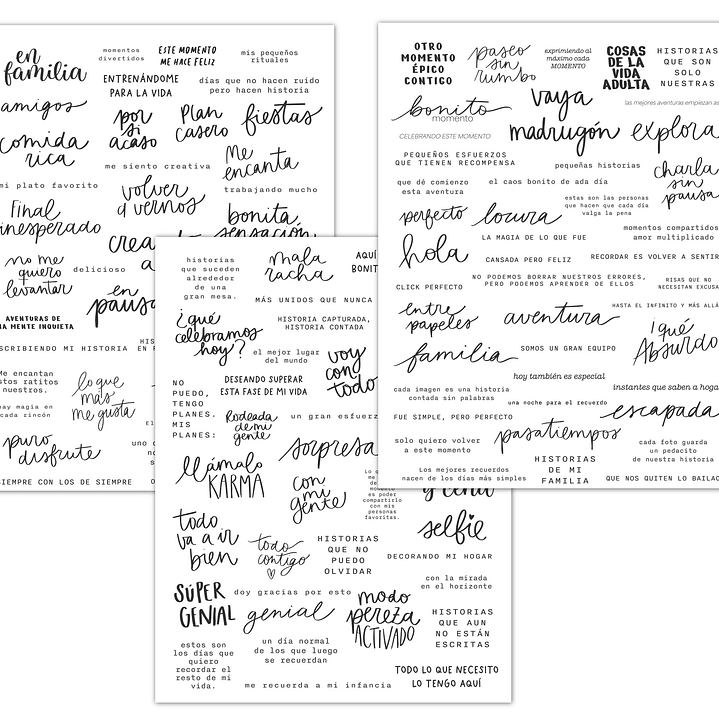 en
familia
momentos
divertidos
ESTE MOMENTO
ME HACE FELIZ
mis pequeños
rituales
amigos
ENTRENÁNDOME
PARA LA VIDA
días que no hacen ruido
pero hacen historia
por
si
acaso
Plan
casero
fiestas
comida
rica
me siento creativa
Me
encanta
mi plato favorito
volver
a vernos
trabajando mucho
final
inesperado
bonita
sensación
crea
no me
quiero
levantar
delicioso
a
en
pausa
AVENTURAS DE
MENTE INQUIETA
SCRIBIENDO MI HISTORIA
Me encantan
estos ratitos
nuestros.
lo que
más
me gusta
hay magia en
cada rincón
puro
disfrute
uno
SIEMPRE CON LOS DE SIEMPRE
historias
que suceden
alrededor
de una
gran mesa.
mala
racha
AQUÍ
BONIT
MÁS UNIDOS QUE NUNCA
¿qué
celebramos
hoy?
HISTORIA CAPTURADA,
HISTORIA CONTADA
el mejor lugar
del mundo
voy
con
todo
NO
PUEDO,
TENGO
PLANES.
MIS
PLANES:
DESEANDO SUPERAR
ESTA FASE DE MI VIDA
Rodeada
de mi
gente
un gran esfuerz
sorpresa
llámalo
KARMA
con
mi
gente
es poder
compartirlo
con mis
personas
favoritas.
y cena
todo
va a ir
bien
todo
contigo
HISTORIAS
QUE NO
PUEDO
OLVIDAR
selfie
DECORANDO MI HOGAR
con la mirada
en el horizonte
SÚPER
GENIAL
doy gracias por esto
genial
modo
pereza
ACTIVADO
HISTORIAS
QUE AUN
NO ESTÁN
ESCRITAS
estos son
los días que
quiero
recordar el
resto de mi
vida.
un día normal
de los que luego
se recuerdan
TODO LO QUE NECESITO
LO TENGO AQUÍ
me recuerda a mi infancia
OTRO
MOMENTO
ÉPICO
CONTIGO
paseo
sin
rumbo
exprimiendo al
máximo cada
MOMENTO
COSAS
DE LA
VIDA
ADULTA
HISTORIAS
QUE SON
SOLO
NUESTRAS
bonito
momento
vaya
madrugón
las mejores aventuras empiezan as
CELEBRANDO ESTE MOMENTO
explora
PEQUEÑOS ESFUERZOS
QUE TIENEN RECOMPENSA
pequeñas historias
charla
sin
pausa
que dé comienzo
esta aventura
el caos bonito de ada día
estas son las personas
que hacen que cada día
valga la pena
perfecto
locura
LA MAGIA DE LO QUE FUE
momentos compartidos
amor multiplicado
hola
CANSADA PERO FELIZ
RECORDAR ES VOLVER A SENTIR
CLICK PERFECTO
NO PODEMOS BORRAR NUESTROS ERRORES,
PERO PODEMOS APRENDER DE ELLOS
RISAS QUE NO
NECESITAN EXCUSA
entre
papeles
aventura
HASTA EL INFINITO Y MÁS ALL
familia
SOMOS UN GRAN EQUIPO
¡qué
Absurdo
hoy también es especial
cada imagen es una historia
contada sin palabras
instantes que saben a hoga
una noche para el recuerdo
FUE SIMPLE, PERO PERFECTO
escapada
pasatiempos
solo quiero volver
a este momento
cada foto guarda
un pedacito
de nuestra historia
Los mejores recuerdos
nacen de los días más simples
HISTORIAS
DE MI
FAMILIA
QUE NOS QUITEN LO BAILAO